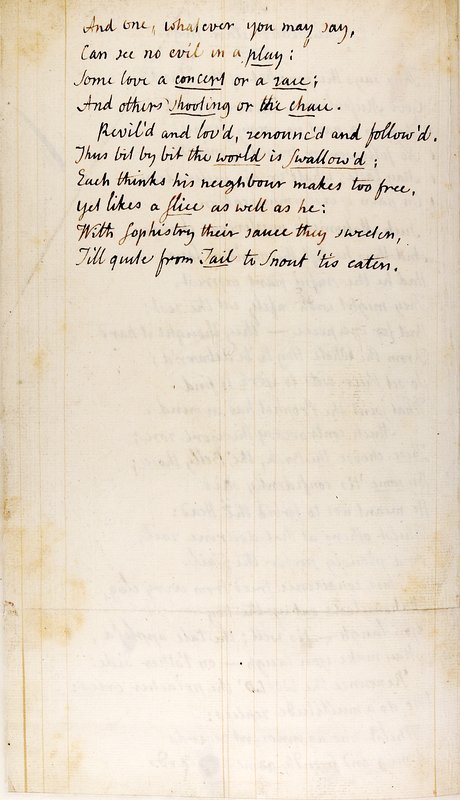 And one, whatever you may say,
Can see no evil in a play;
Some love a concert or a race;
And others shooting or the chace.
Revil'd and lov'd, renounc'd and follow'd.
Thus bit by bit the world is swallow'd;
Each thinks his neighbour makes too free,
Yet likes a slice as well as he:
With sophistry their sauce they sweeten,
Till quite from Tail to Snout 'tis eaten.